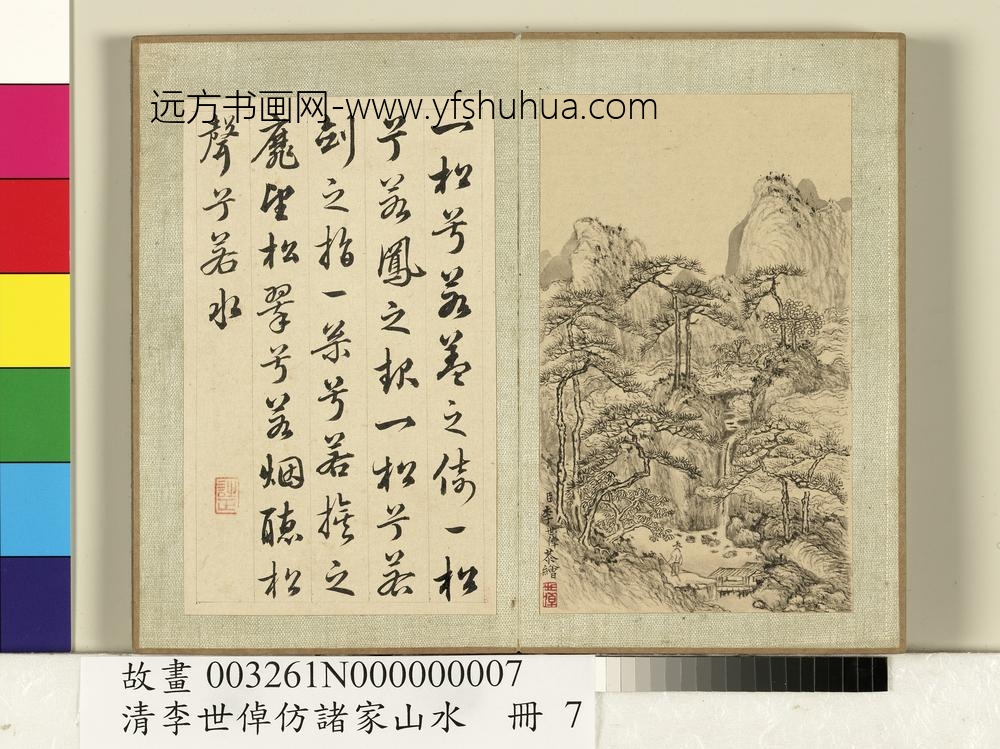 远方书画网-www.yfshuhua.com
一松兮若蓋之倚一松
兮若鳳之一松兮若
劍之指一兮若之
麾望松翠兮若烟聽松
聲兮若水
臣李世倬恭繪
故畫 003261N000000007
清李世倬仿諸家山水 冊 7